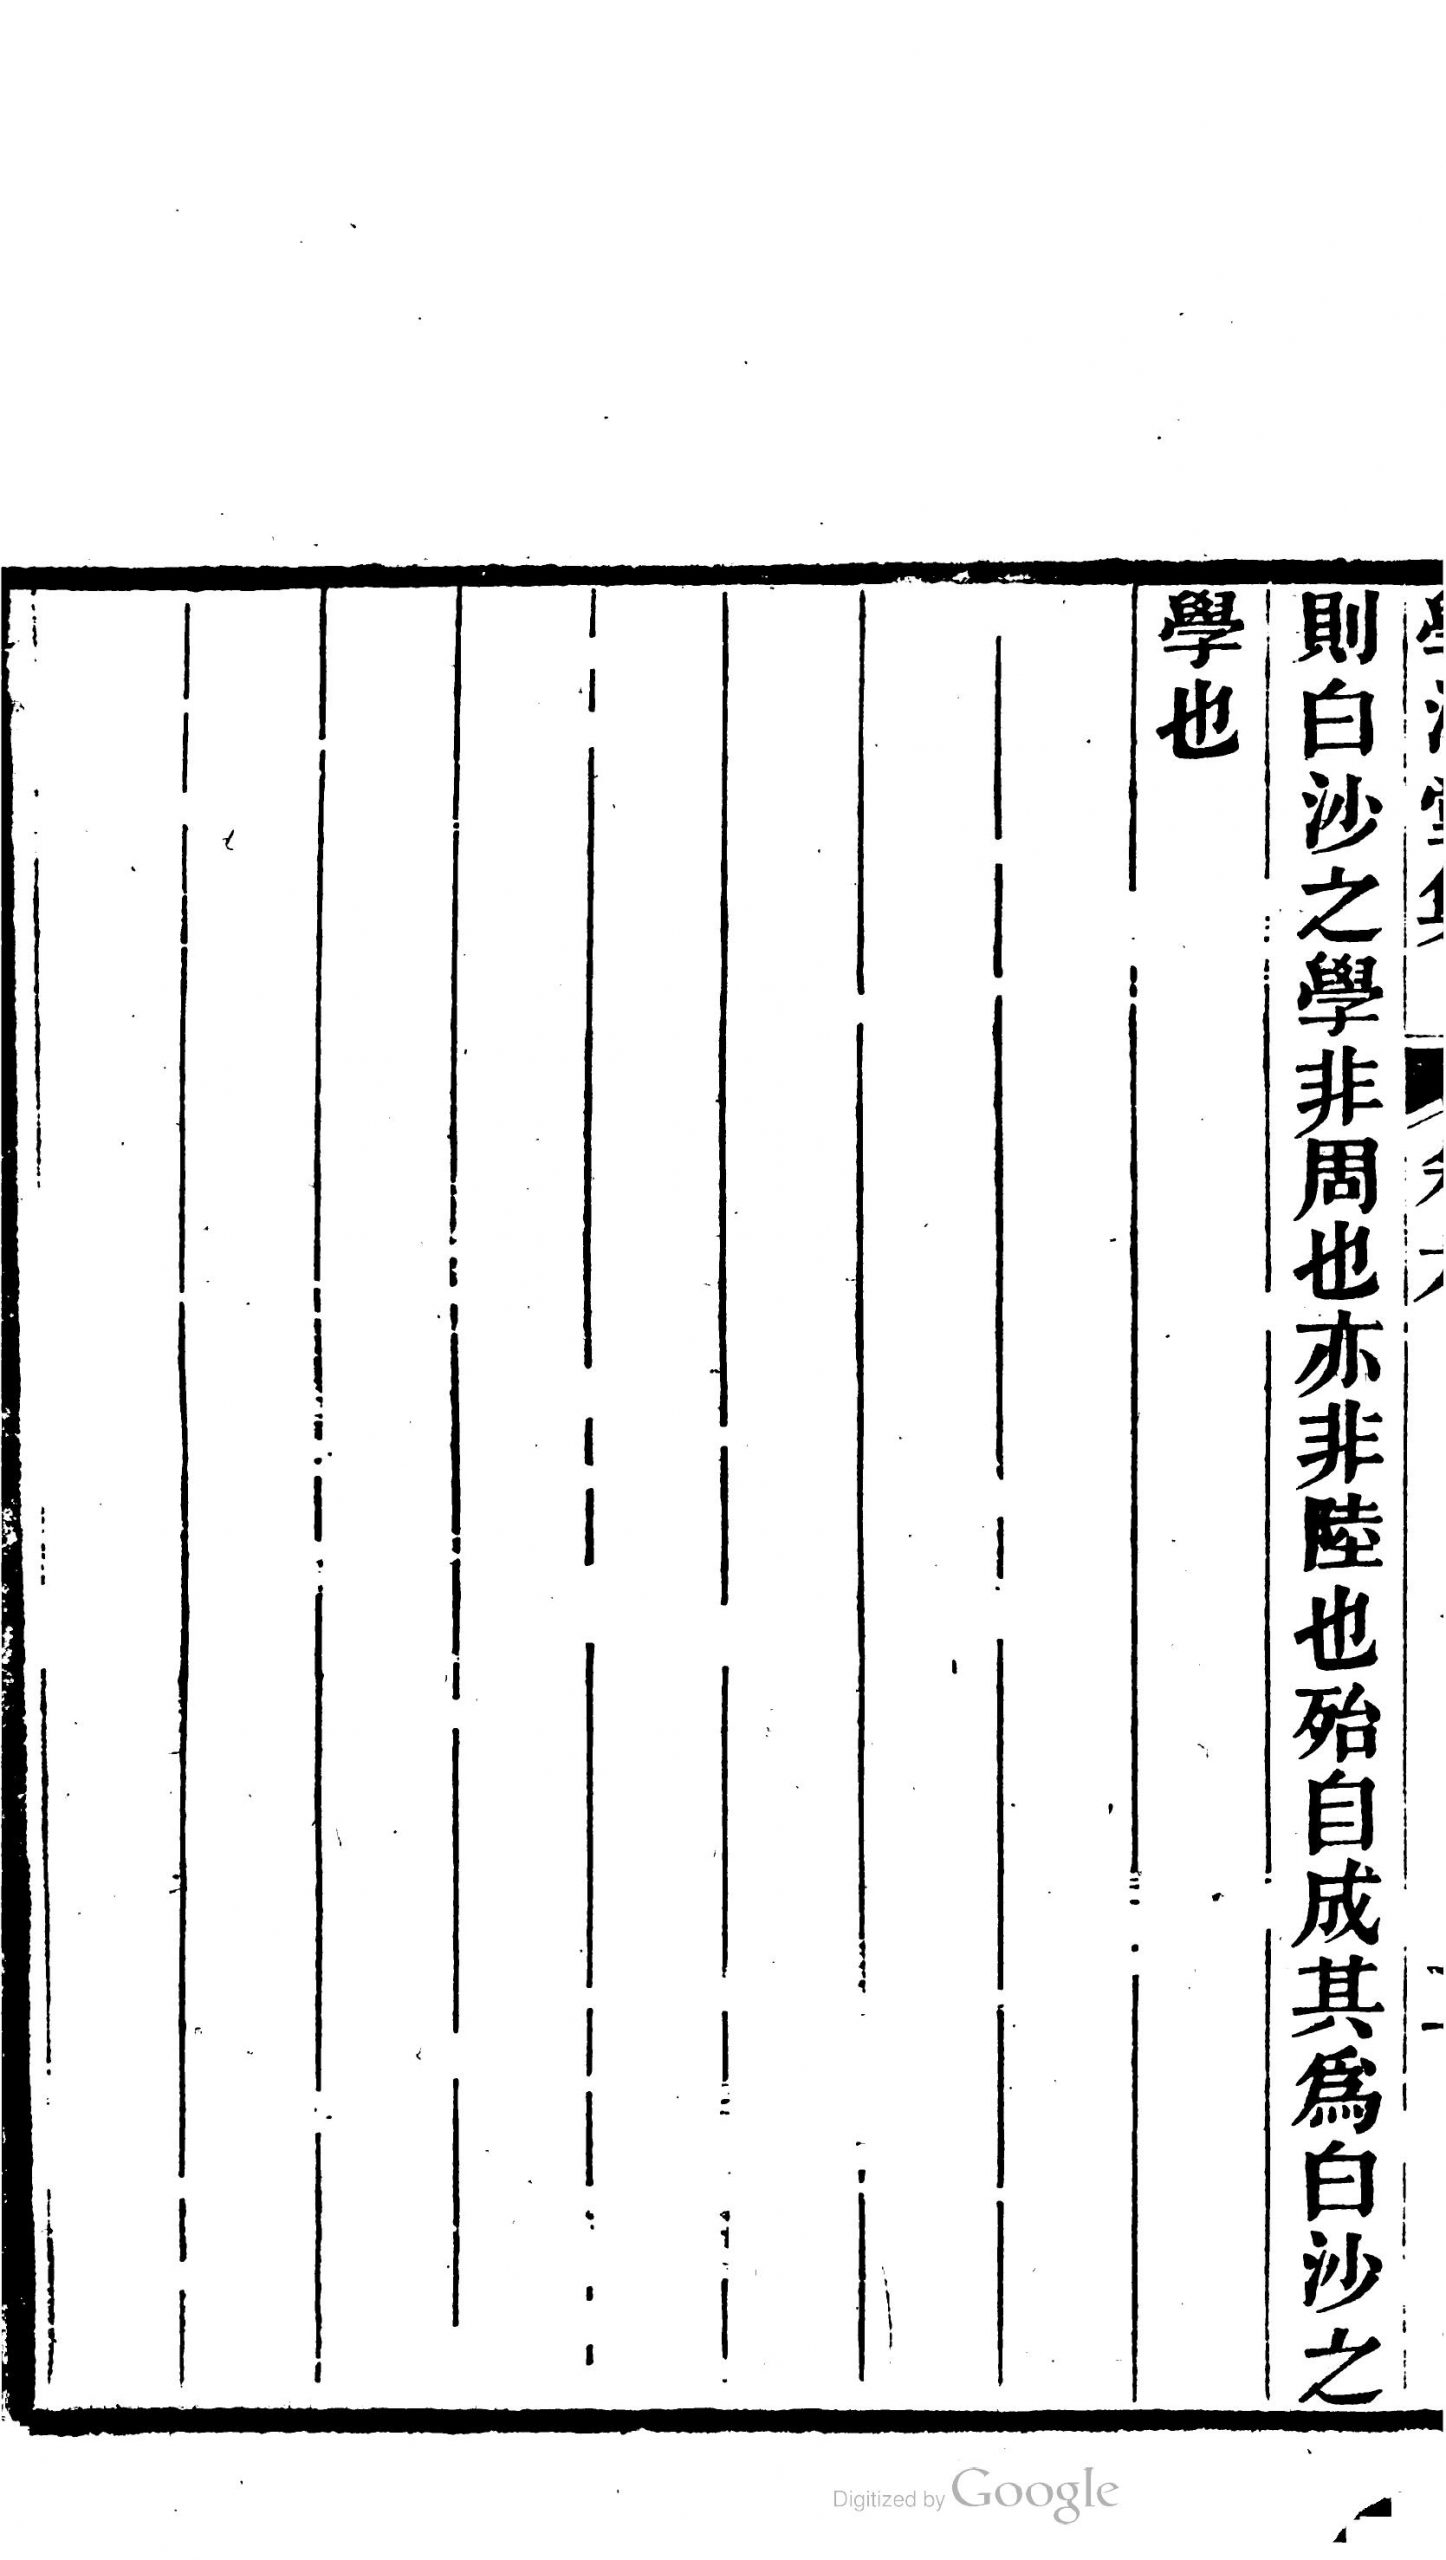 則白沙之學非周也亦非陸也殆自成其為白沙之
學也
Digitized by Google